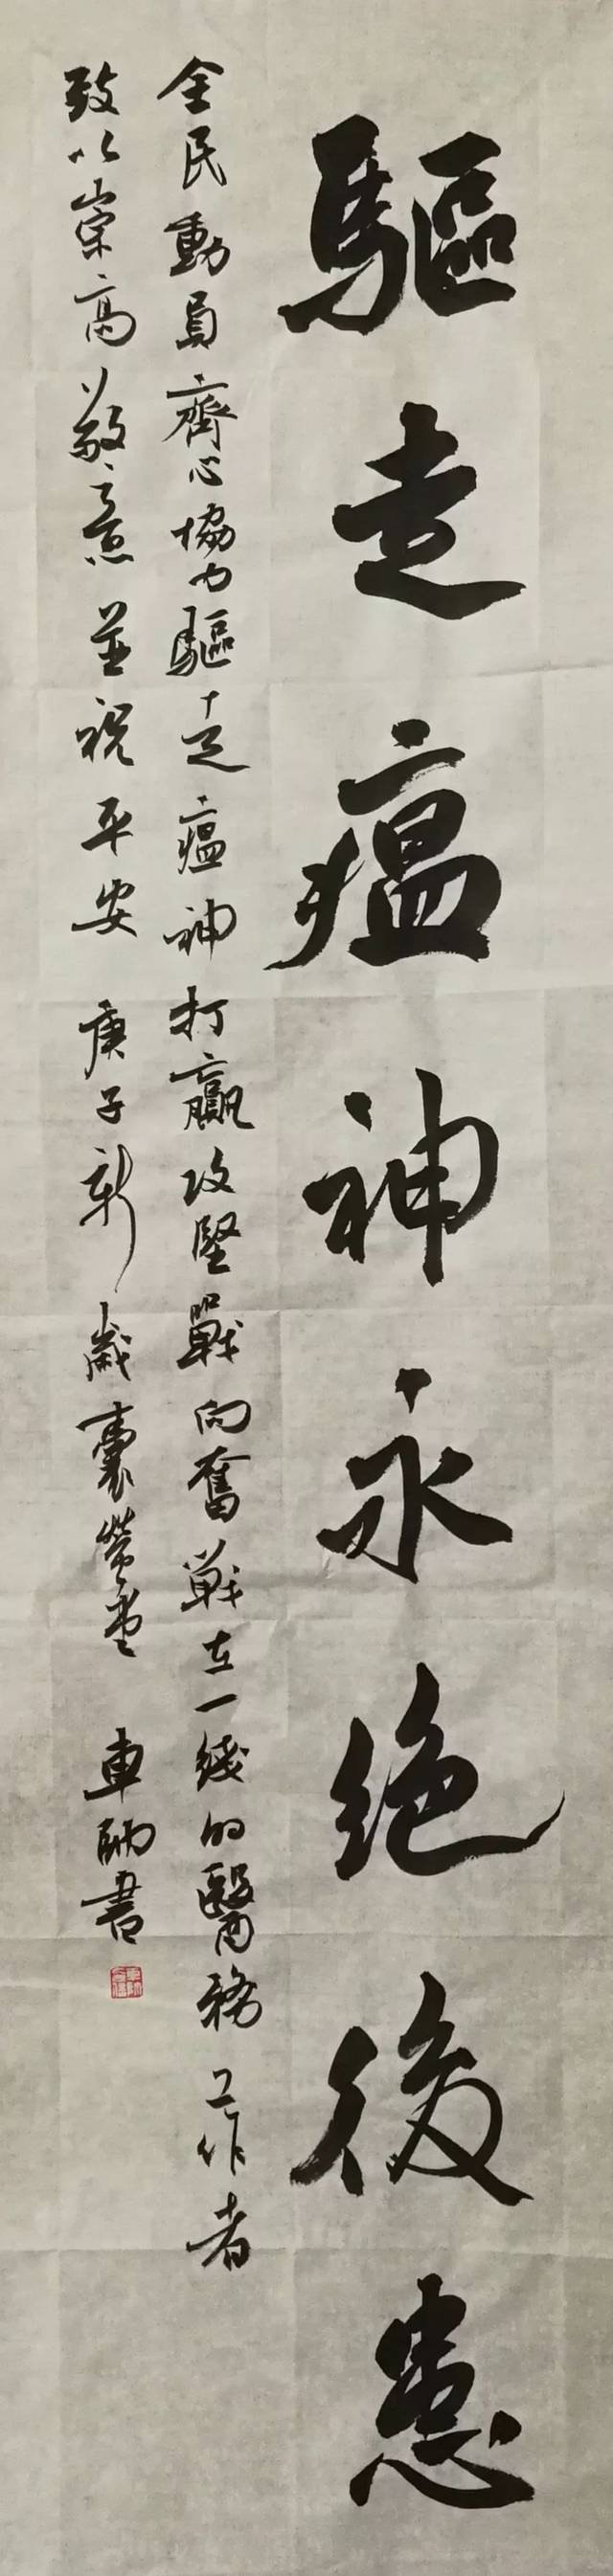 驅走瘟神永绝後患
全民動員齊心協力驅走瘟神打贏攻堅戰向奮戰在一线的醫務工作者
致以崇高敬意並祝平安 庚子新歲囊螢堂 車帥書